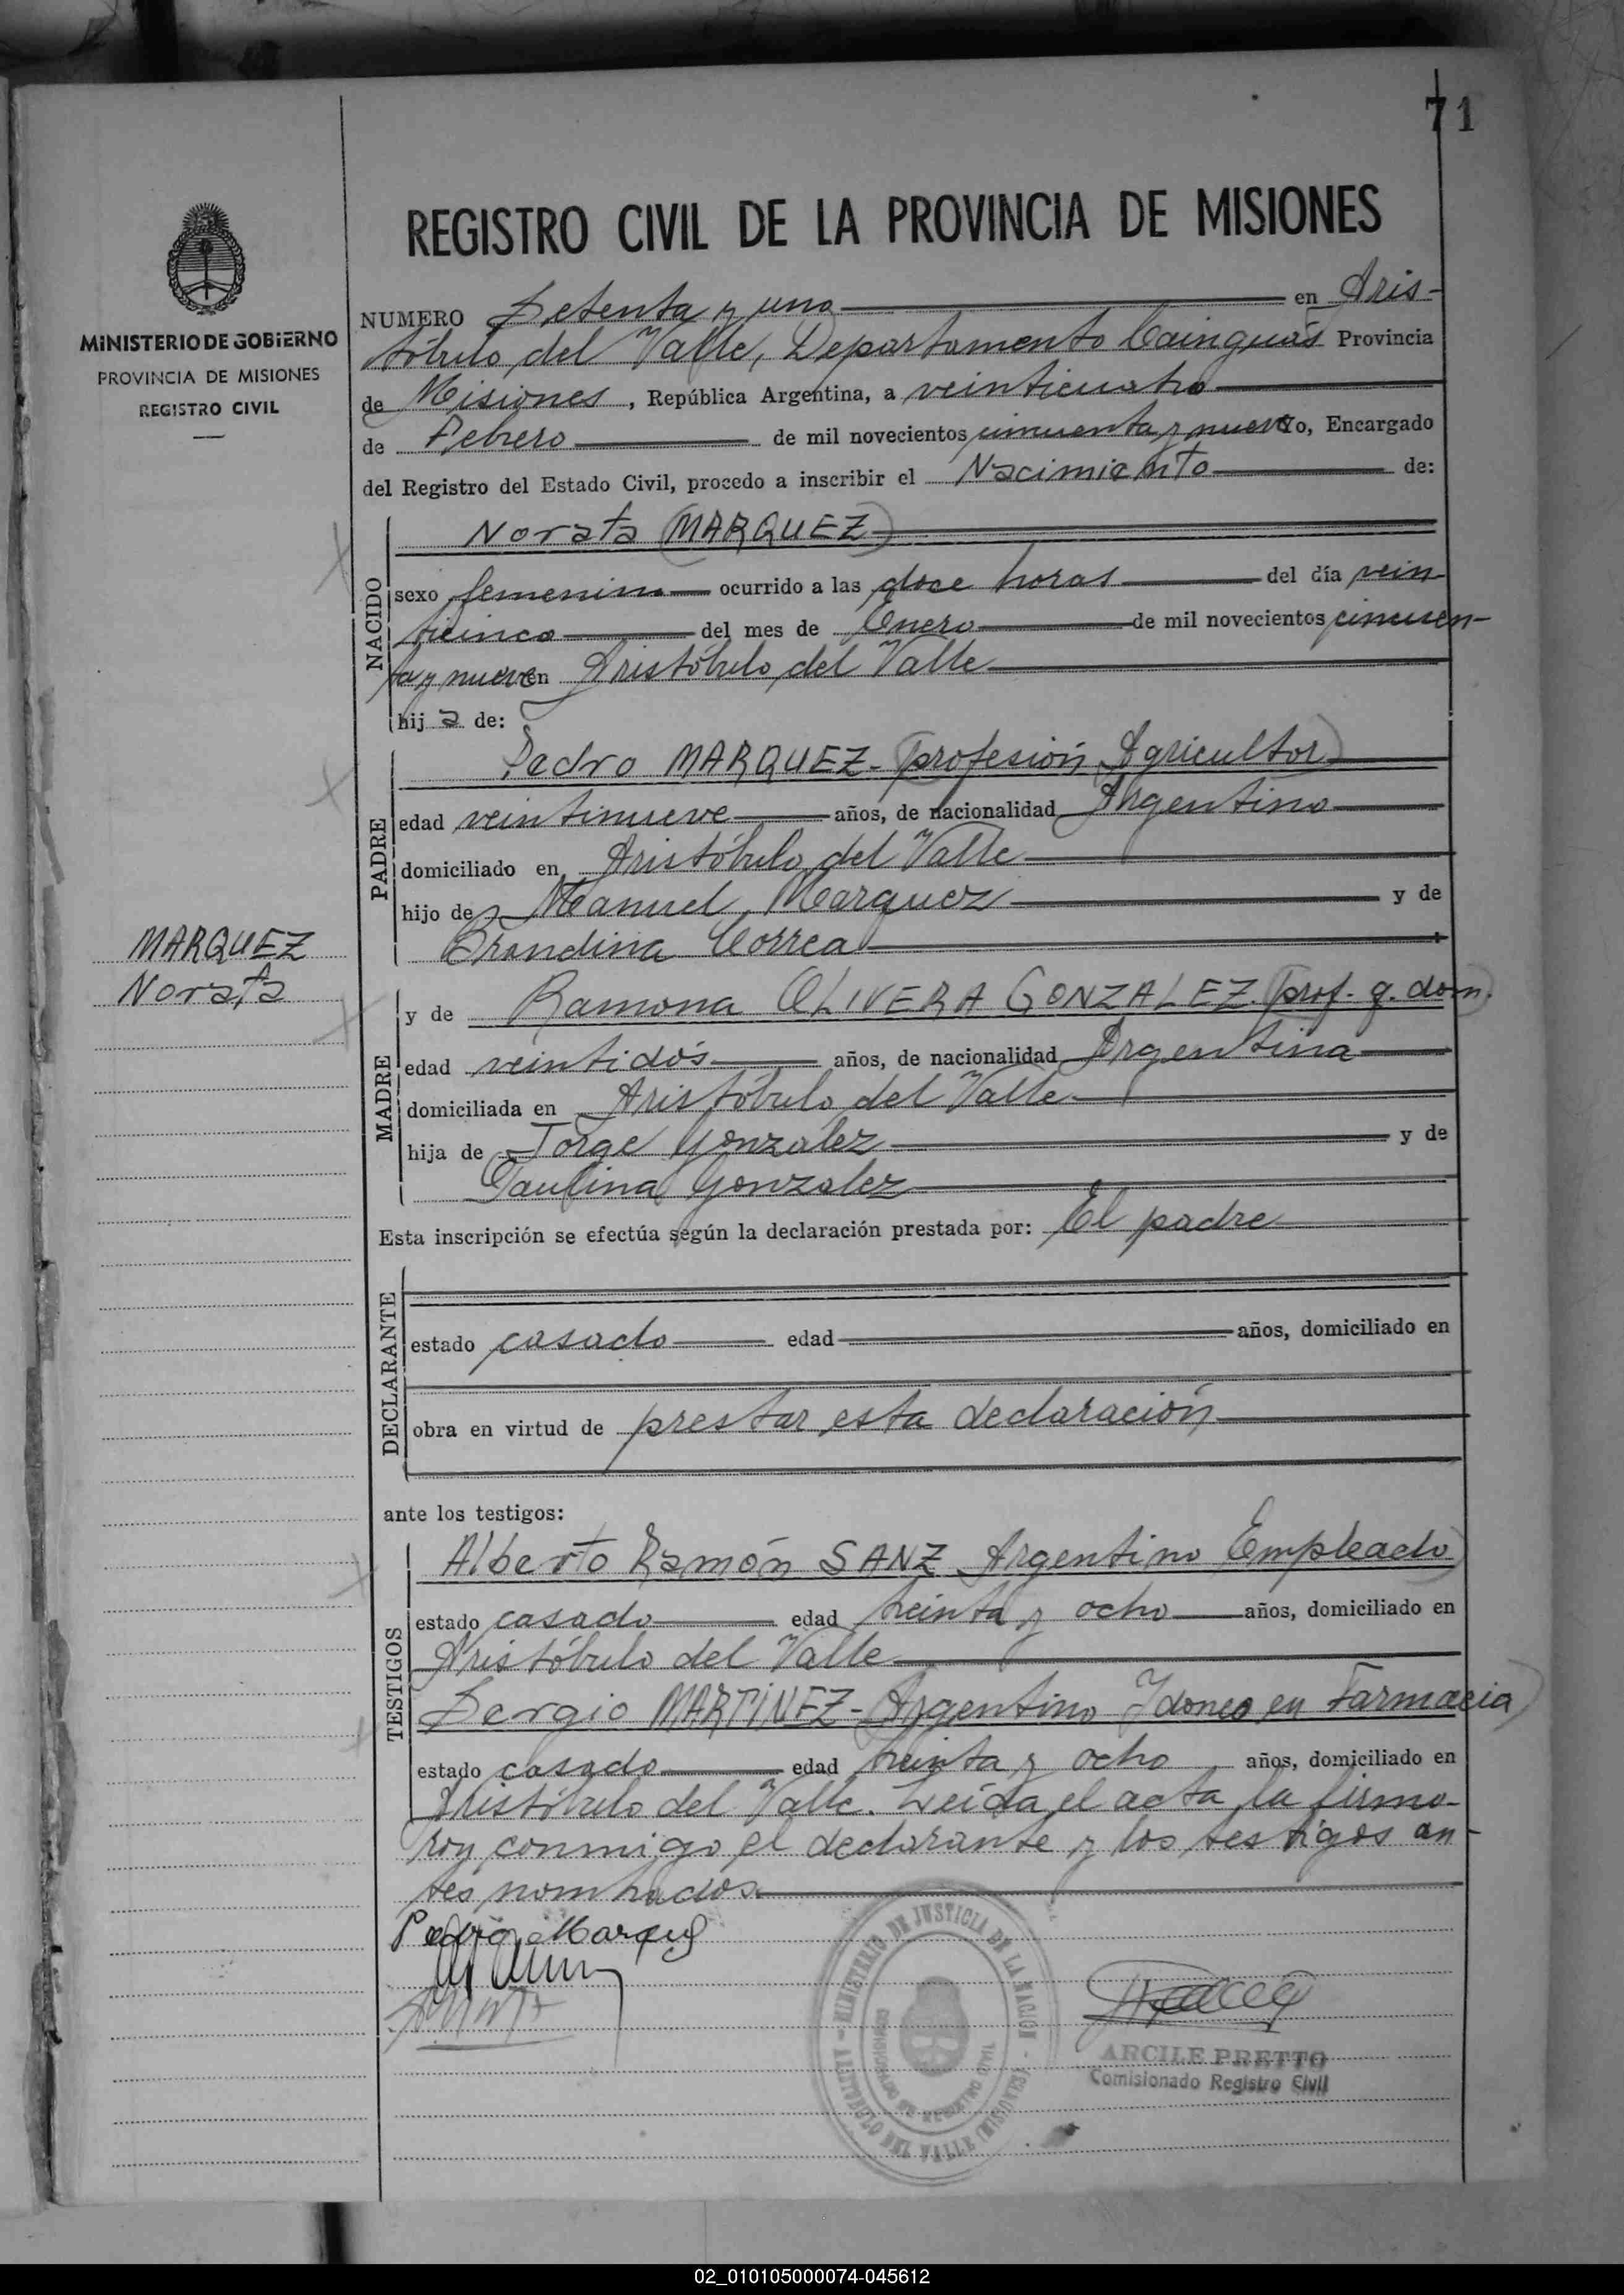 71
MINISTERIO DE GOBIERNO
PROVINCIA DE MISIONES
REGISTRO CIVIL
MARQUEZ
Norata
REGISTRO CIVIL DE LA PROVINCIA DE MISIONES
NUMERO Setenta y uno en Aris-
tóbulo del Valle, Departamento Cainguás Provincia
de Misiones, República Argentina, a veinticuatro
de Febrero de mil novecientos cincuenta y nueve yo, Encargado
del Registro del Estado Civil, procedo a inscribir el Nacimiento de:
NACIDO
Norata (MARQUEZ)
sexo femenino ocurrido a las doce horas del día vein-
ticinco del mes de Enero de mil novecientos cincuen-
ta y nueve en Aristóbulo del Valle
hij a de:
PADRE
Pedro MARQUEZ - (profesión Agricultor)
edad veintinueve años, de nacionalidad Argentino
domiciliado en Aristóbulo del Valle
hijo de Manuel Marquez y de
Correa
MADRE
y de Ramona OLIVERA GONZALEZ. (prof. q. dom.)
edad veintidós años, de nacionalidad Argentina
domiciliada en Aristóbulo del Valle
hija de Jorge Gonzalez y de
Paulina Gonzalez
Esta inscripción se efectúa según la declaración prestada por: El padre
DECLARANTE
estado casado edad años, domiciliado en
obra en virtud de prestar esta declaración
ante los testigos:
TESTIGOS
Alberto Ramón SANZ Argentino Empleado)
estado casado edad treinta y ocho años, domiciliado en
Aristóbulo del Valle
Sergio MARTINEZ - (Argentino Idoneo en Farmacia)
estado casado edad treinta y ocho años, domiciliado en
Aristóbulo del Valle. Leída el acta la firma-
ron conmigo el declarante y los testigos an-
tes nombrados.
Pedro Marquez
MINISTERIO DE JUSTICIA DE LA NACION - ARISTOBULO DEL VALLE (MISIONES) -
ARCILE PRETTO
Comisionado Registro Civil
02_010105000074-045612